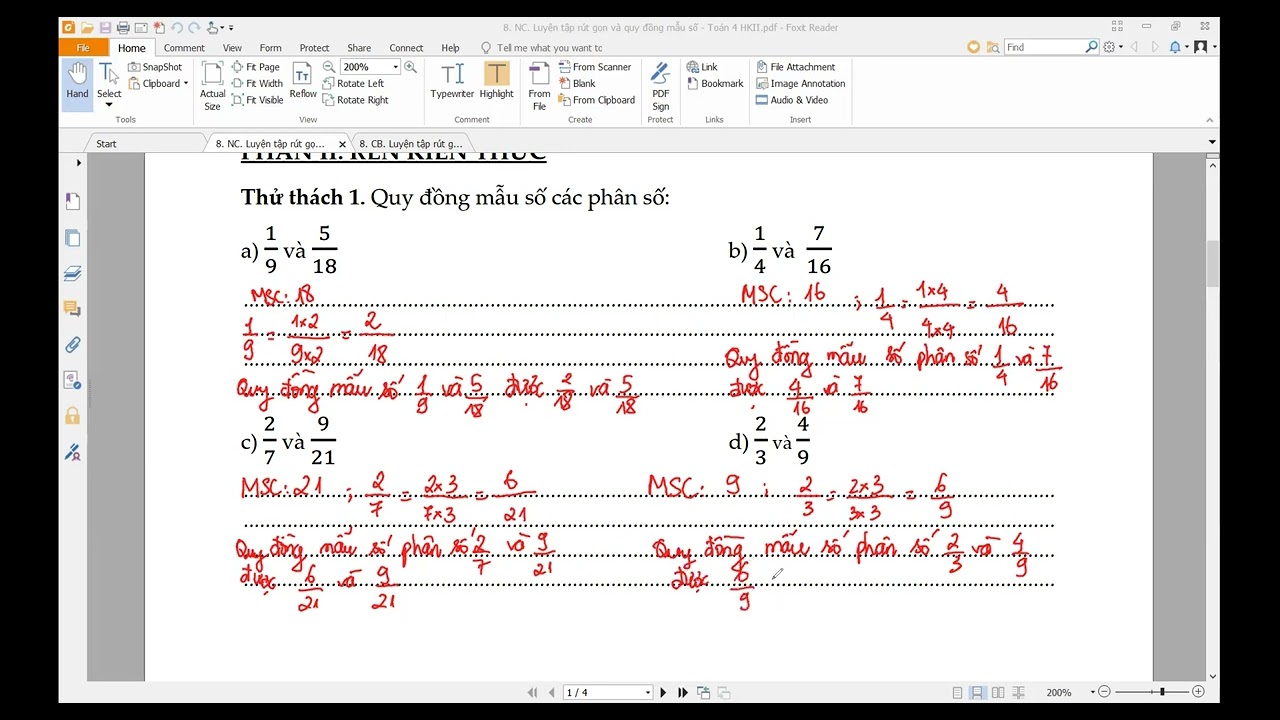 8. NC. Luyện tập rút gọn và quy đồng mẫu số - Toán 4 HKII.pdf - Foxit Reader
File Home Comment View Form Protect Share Connect Help Tell me what you want to Find
Hand
Select
SnapShot
Clipboard
Tools
Actual Size
Fit Page
Fit Width
Fit Visible
Reflow
200%
Rotate Left
Rotate Right
View
Typewriter
Highlight
Comment
From File
From Scanner
Blank
From Clipboard
Create
PDF Sign
Protect
Link
Bookmark
Links
File Attachment
Image Annotation
Audio & Video
Insert
Start 8. NC. Luyện tập rút gọ... 8. CB. Luyện tập rút g...
PHẦN II. RÈN KIẾN THỨC
Thử thách 1. Quy đồng mẫu số các phân số:
a) 1/9 và 5/18
b) 1/4 và 7/16
MSC: 18
1/9 = 1×2/9×2 = 2/18
Quy đồng mẫu số 1/9 và 5/18 được 2/18 và 5/18
MSC: 16 ; 1/4 = 1×4/4×4 = 4/16
Quy đồng mẫu số phân số 1/4 và 7/16
được 4/16 và 7/16
c) 2/7 và 9/21
d) 2/3 và 4/9
MSC: 21 ; 2/7 = 2×3/7×3 = 6/21
Quy đồng mẫu số phân số 2/7 và 9/21
được 6/21 và 9/21
MSC: 9 ; 2/3 = 2×3/3×3 = 6/9
Quy đồng mẫu số phân số 2/3 và 4/9
được 6/9
1 / 4
200%